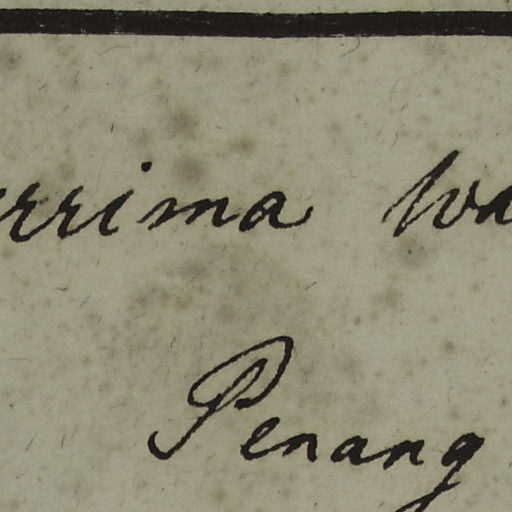 errima Wa
Penang